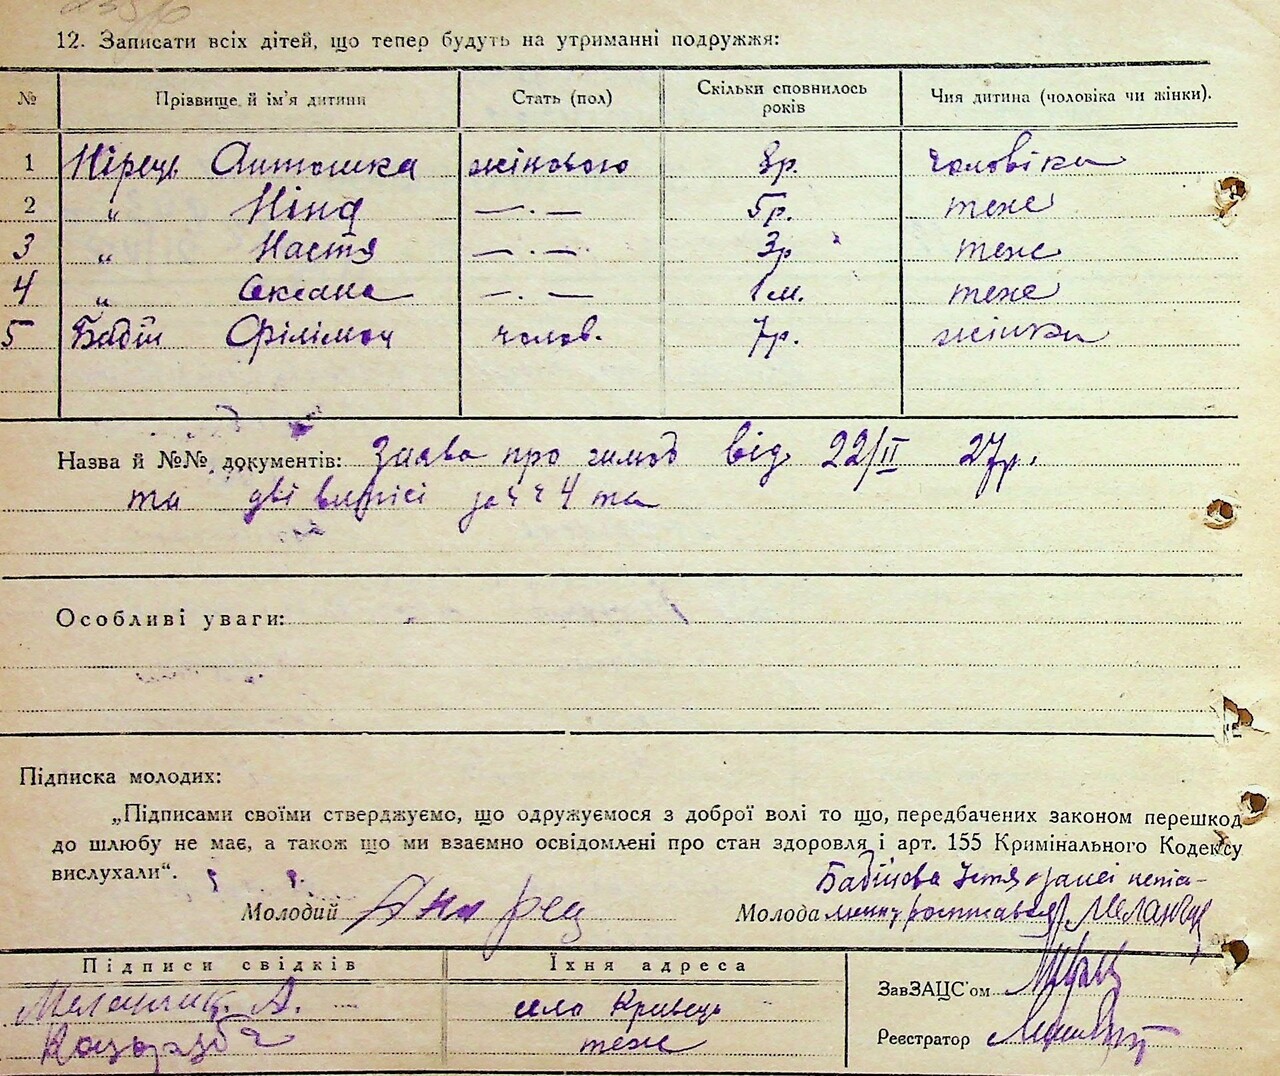 12. Записати всіх дітей, що тепер будуть на утриманні подружжя:
№ Прізвище й ім'я дитини Стать (пол) Скільки сповнилось років Чия дитина (чоловіка чи жінки).
1 Нірець Антошка жіночого 8р. чоловіка
2 " Ніна —.— 5р. теже
3 " Настя —.— 3р теже
4 " Оксана —.— 1м. теже
5 Бадін Філімон чолов. 7р. жінки
Назва й №№ документів: Заява про від 22/II 27р.
та дві виписі за та
Особливі уваги:
Підписка молодих:
„Підписами своїми стверджуємо, що одружуємося з доброї волі то що, передбачених законом перешкод
до шлюбу не має, а також що ми взаємно освідомлені про стан здоровля і арт. 155 Кримінального Кодексу
вислухали“.
Молодий
Молода
Підписи свідків Їхня адреса
село Кривець
теже
ЗавЗАЦС'ом
Реєстратор